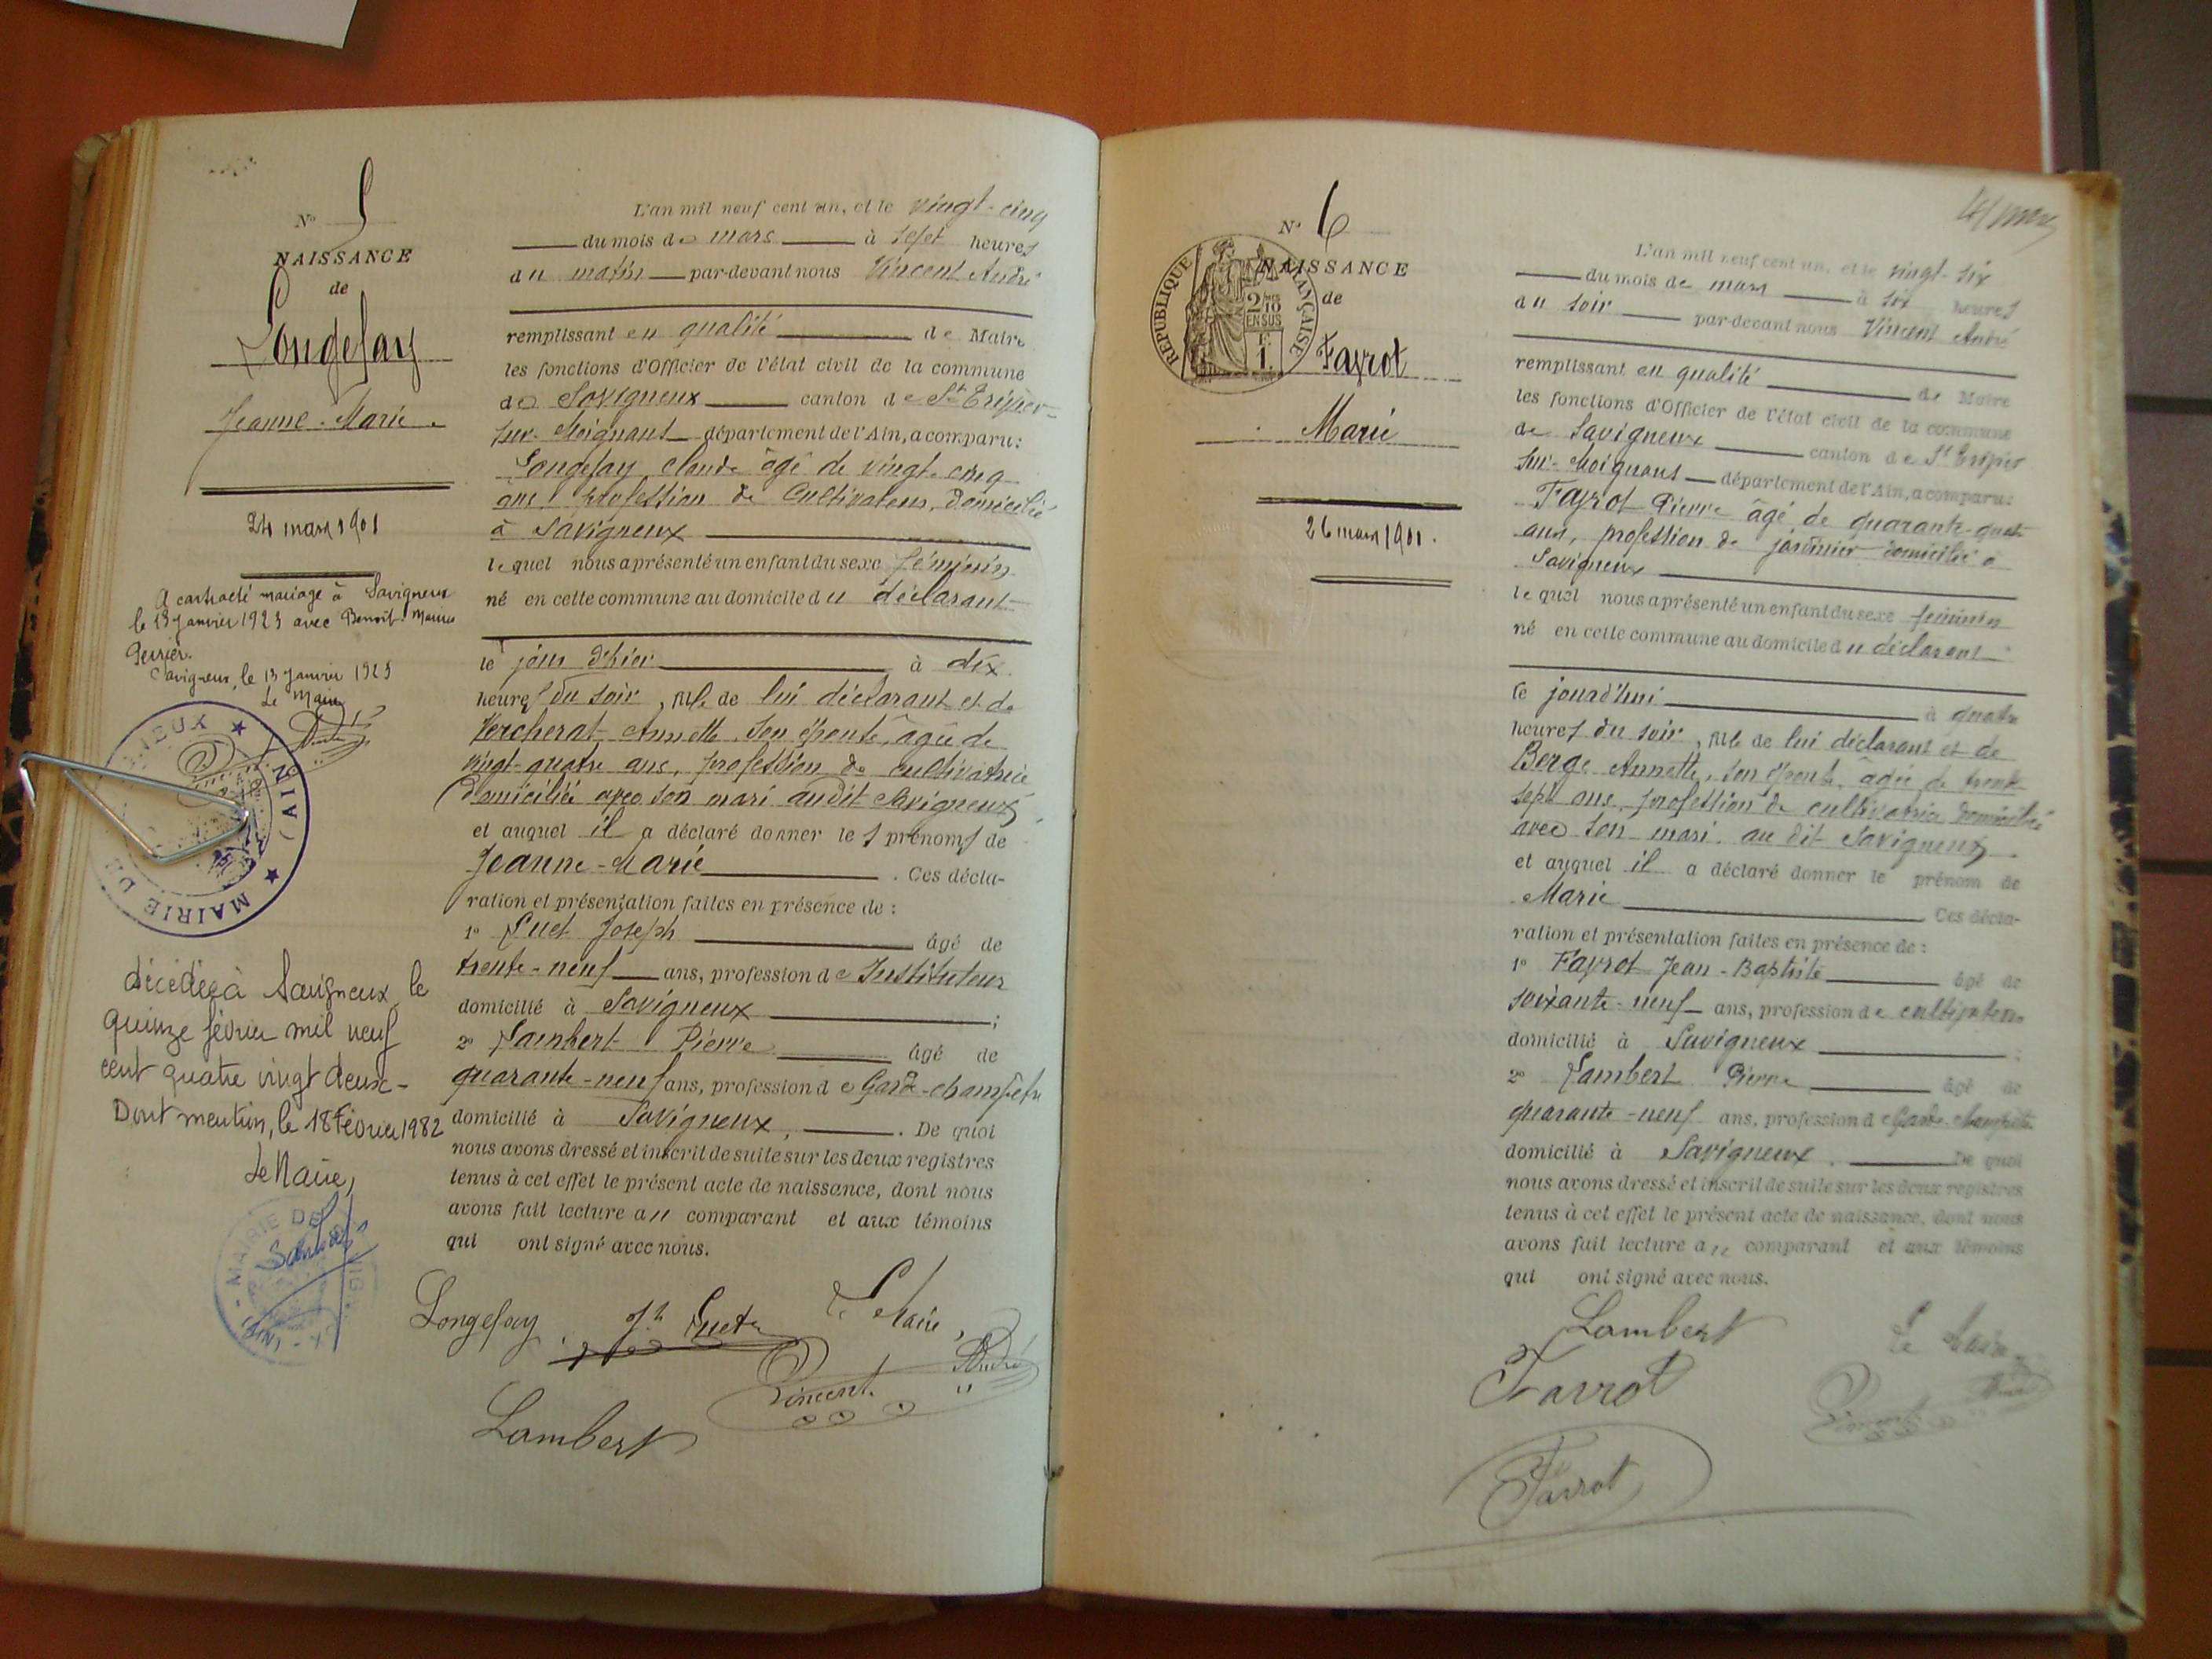 N° 5
NAISSANCE
de
Longefay
Jeanne-Marie
24 mars 1901
A contracté mariage à Savigneux
le 13 janvier 1923 avec Benoit Marius
Perrier.
Savigneux, le 13 janvier 1923
Le Maire
MAIRIE DE SAVIGNEUX (AIN)
décédée à Savigneux le
quinze février mil neuf
cent quatre vingt deux -
Dont mention, le 18 Février 1982
Le Maire,
MAIRIE DE
L'an mil neuf cent un, et le vingt-cinq
du mois de mars à sept heures
du matin par-devant nous Vincent André
remplissant en qualité de Maire
les fonctions d'Officier de l'état civil de la commune
de Savigneux canton de St Trivier-
sur-Moignans département de l'Ain, a comparu:
Longefay Claude âgé de vingt-cinq
ans, profession de Cultivateur, domicilié
à Savigneux
lequel nous a présenté un enfant du sexe féminin
né en cette commune au domicile du déclarant
le jour d'hier à dix
heures du soir, fille de lui déclarant et de
Vercherat Annette, son épouse, âgée de
vingt-quatre ans, profession de cultivatrice
domiciliée avec son mari audit Savigneux
et auquel il a déclaré donner les prénoms de
Jeanne-Marie. Ces décla-
ration et présentation faites en présence de :
1° Luet Joseph âgé de
trente-neuf ans, profession de Instituteur
domicilié à Savigneux ;
2° Lambert Pierre âgé de
quarante-neuf ans, profession de Garde-champêtre
domicilié à Savigneux, . De quoi
nous avons dressé et inscrit de suite sur les deux registres
tenus à cet effet le présent acte de naissance, dont nous
avons fait lecture au comparant et aux témoins
qui ont signé avec nous.
Longefay Jh Luet Le Maire,
Vincent André
Lambert
N° 6
NAISSANCE
de
REPUBLIQUE FRANÇAISE
2/10 EN SUS
1 F.
Fayrot
Marie
26 mars 1901.
L'an mil neuf cent un, et le vingt-six
du mois de mars à six heures
du soir par-devant nous Vincent André
remplissant en qualité de Maire
les fonctions d'Officier de l'état civil de la commune
de Savigneux canton de St Trivier
sur-Moignans département de l'Ain, a comparu:
Fayrot Pierre âgé de quarante-quatre
ans, profession de jardinier domicilié à
Savigneux
lequel nous a présenté un enfant du sexe féminin
né en cette commune au domicile du déclarant
le jourd'hui à quatre
heures du soir, fille de lui déclarant et de
Berge Annette, son épouse, âgée de trente
sept ans, profession de cultivatrice domiciliée
avec son mari au dit Savigneux
et auquel il a déclaré donner le prénom de
Marie Ces décla-
ration et présentation faites en présence de :
1° Fayrot Jean-Baptiste âgé de
soixante-neuf ans, profession de cultivateur
domicilié à Savigneux ;
2° Lambert Pierre âgé de
quarante-neuf ans, profession de Garde champêtre
domicilié à Savigneux. De quoi
nous avons dressé et inscrit de suite sur les deux registres
tenus à cet effet le présent acte de naissance, dont nous
avons fait lecture au comparant et aux témoins
qui ont signé avec nous.
Lambert Le Maire
Favrot
Vincent André
Favrot